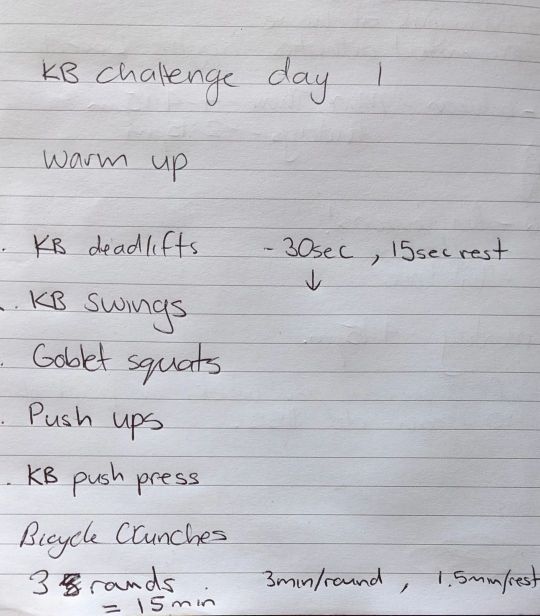 KB challenge day 1
Warm up
. KB deadlifts - 30sec , 15sec rest
↓
. KB swings
. Goblet squats
. Push ups
. KB push press
Bicycle Crunches
3 rounds 3min/round , 1.5min/rest
= 15min